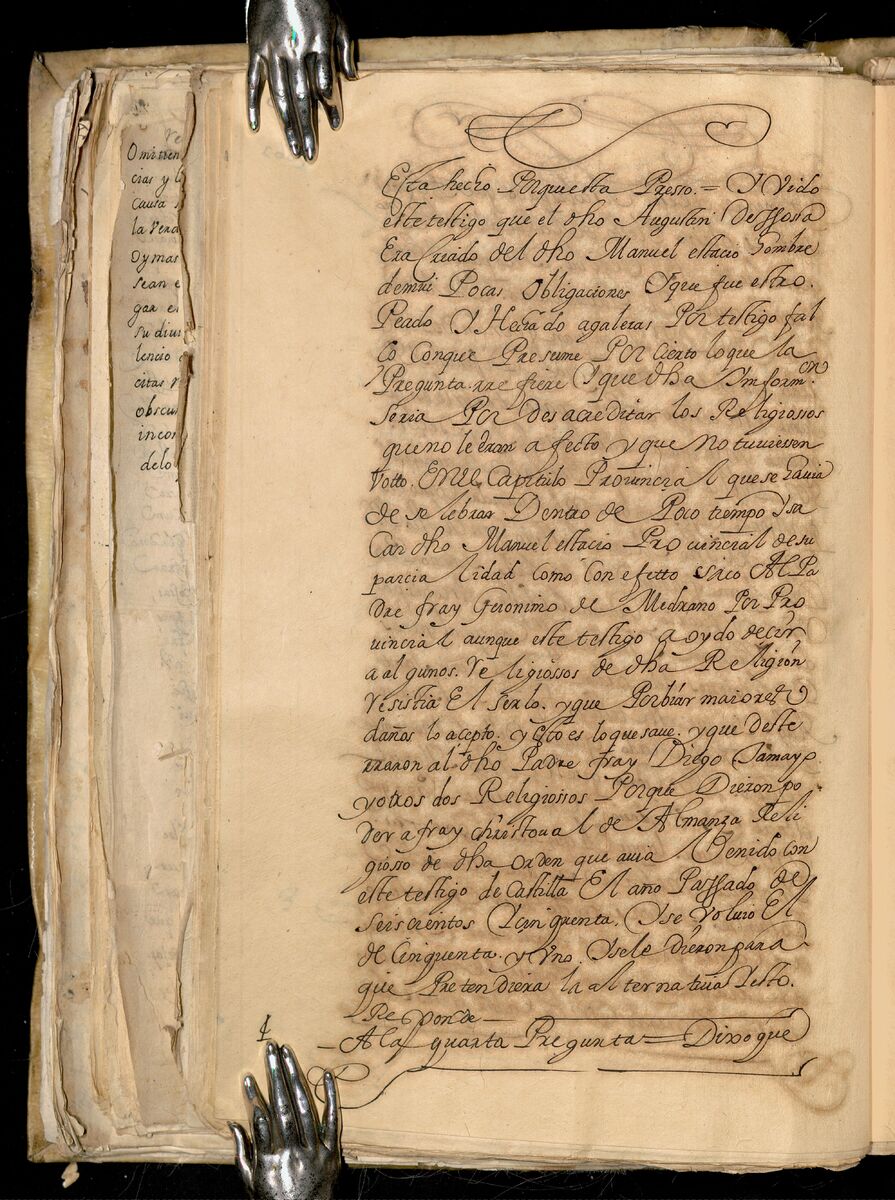 Omitien
cias y l
Causa
la Verd
Oy mas
sean e
gar e
su diu
lencio
citas
obscu
incon
delo
Esta hecho Porquesta Presso. = Y Vido
este testigo que el dho Augustin
Era Criado del dho Manuel estacio hombre
demui Pocas Obligaciones Y que fue estro
Peado Y Hechado a galeras Por testigo fal
ço Conque Presume Por cierto lo que la
Pregunta rre fiere Y que dha Ynform.on
Seria Por des acreditar los Religiossos
que no le eran a fecto y que No tuuiessen
Votto. En El Capitulo Prouincial que se hauia
de se lebrar Dentro de Poco tiempo Y sa
Car dho Manuel estacio Pro uincial de su
parcia lidad como Con efetto saco Al Pa
dre fray Geronimo de Medrano Por Pro
uincial aunque este testigo a oydo decir
a al gunos. Re ligiossos de dha Religion
resistia El serlo. y que Porbiar maiores
daños lo acepto. y Esto es lo que saue. y que deste
rraron al dho Padre fray Diego Tamayo
y otros dos Religiossos Porque Dieron po
der a fray christoual de Almanza Reli
giosso de dha orden que auia Benido con
este testigo de Castilla El año Passado de
Seiscientos Ycinquenta, Y se Voluio El
de Cinquenta. y Vno. Ysele dieron para
que Pretendiera la al ternatiua Yesto.
Re ponde
A la quarta Pregunta = Dixo que